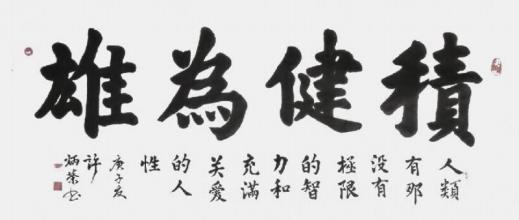 積健為雄
人類
有那
没有
極限
的智
力和
充滿
关愛
的人
性
庚子夏
許炳榮书